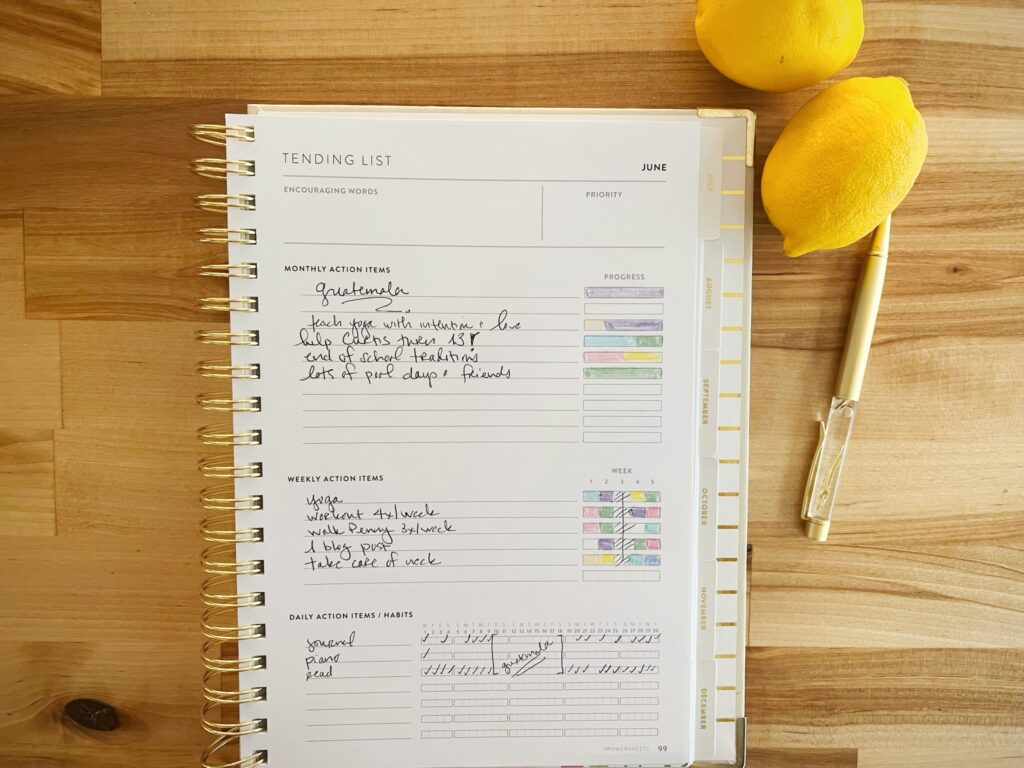 TENDING LIST
JUNE
ENCOURAGING WORDS
PRIORITY
MONTHLY ACTION ITEMS
PROGRESS
guatemala
teach yoga with intention + love
help Curtis turn 13!
end of school traditions
lots of pool days + friends
WEEKLY ACTION ITEMS
WEEK
1 2 3 4 5
yoga
workout 4x/week
walk Penny 3x/week
1 blog post
take care of neck
DAILY ACTION ITEMS / HABITS
journal
piano
read
guatemala
POWERSHEETS 99
JULY
AUGUST
SEPTEMBER
OCTOBER
NOVEMBER
DECEMBER